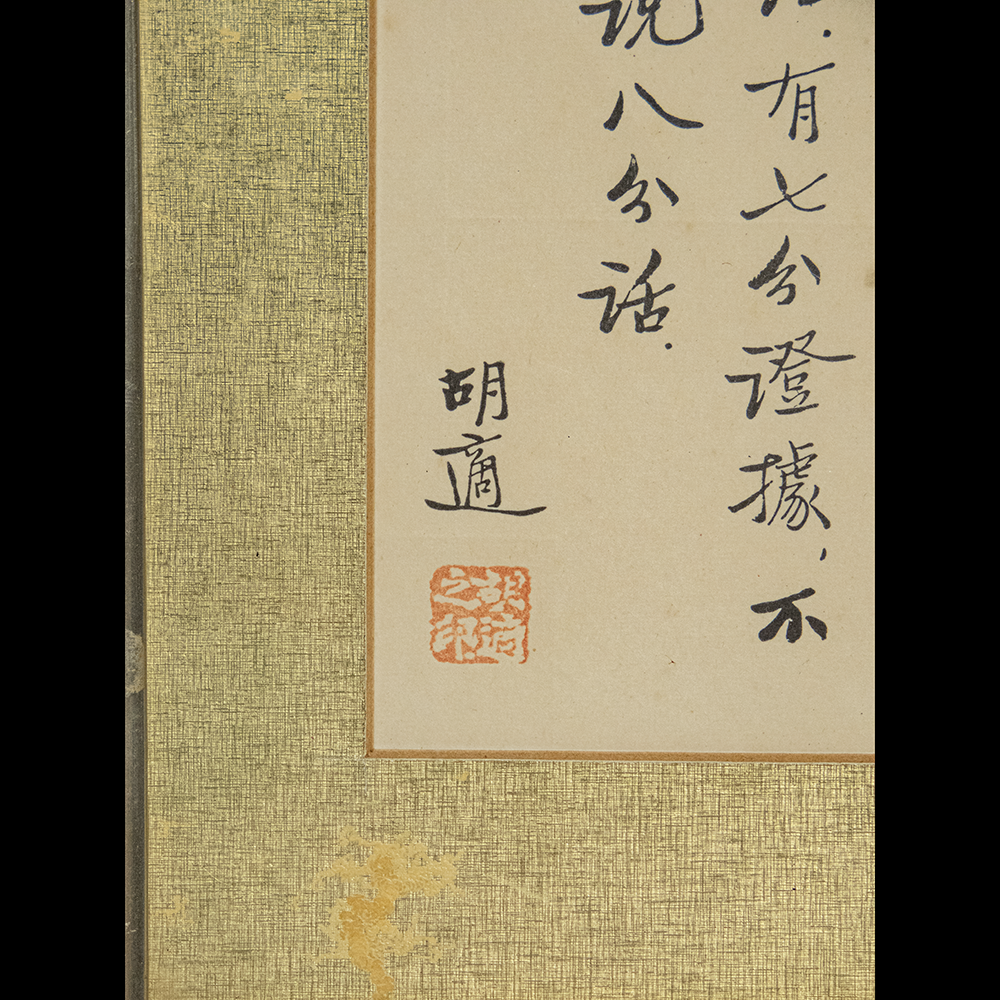 有七分證據,不
說八分话.
胡適
胡適之印